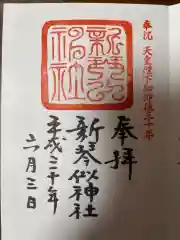 奉祝 天皇陛下御即位三十年
奉拝
新琴似神社
平成三十年
六月三日
新琴似
神社